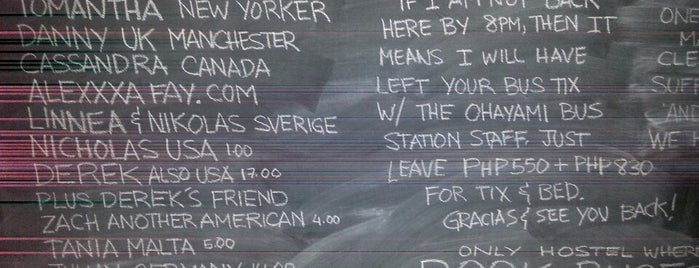 TOMANTHA NEW YORKER
DANNY UK MANCHESTER
CASSANDRA CANADA
ALEXXXA FAY.COM
LINNEA & NIKOLAS SVERIGE
NICHOLAS USA 1.00
DEREK ALSO USA 17.00
PLUS DEREK'S FRIEND
ZACH ANOTHER AMERICAN 4.00
TANIA MALTA 5.00
GERMANY
IF I AM NOT BACK
HERE BY 8PM, THEN IT
MEANS I WILL HAVE
LEFT YOUR BUS TIX
W/ THE OHAYAMI BUS
STATION STAFF. JUST
LEAVE PHP550 + PHP 830
FOR TIX & BED.
GRACIAS & SEE YOU BACK!
ONLY HOSTEL WHERE
ON
MA
CLE
SUF
AN
WE T